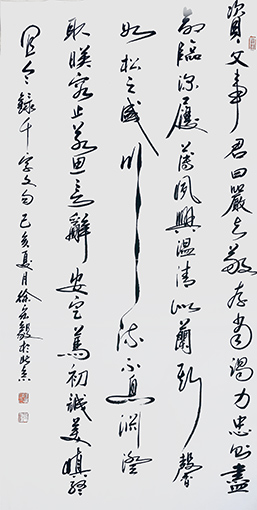 資父事君曰嚴与敬孝當竭力忠則盡
命臨深履薄夙興温清似蘭斯馨
如松之盛川流不息淵澄
取映容止若思言辭安定篤初誠美慎終
宜令錄千字文句己亥夏月徐毅於